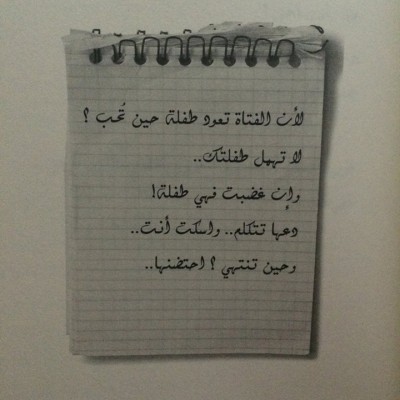 لأن الفتاة تعود طفلة حين تُحب ؟
لا تهمل طفلتك..
وإن غضبت فهي طفلة!
دعها تتكلم.. واسكت أنت..
وحين تنتهي ؟ احتضنها..